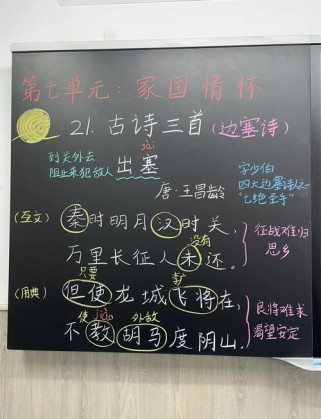 第七单元：家国情怀
21. 古诗三首（边塞诗）
到关外去
阻止来犯敌人
sài
出塞
唐·王昌龄
字少伯
四大边塞诗人之一
"七绝圣手"
（互文）秦时明月汉时关，
没有
万里长征人未还。
征战难归
思乡
只要
（用典）但使龙城飞将在，
使 jiào 外敌
不教胡马度阴山。
良将难求
渴望安定